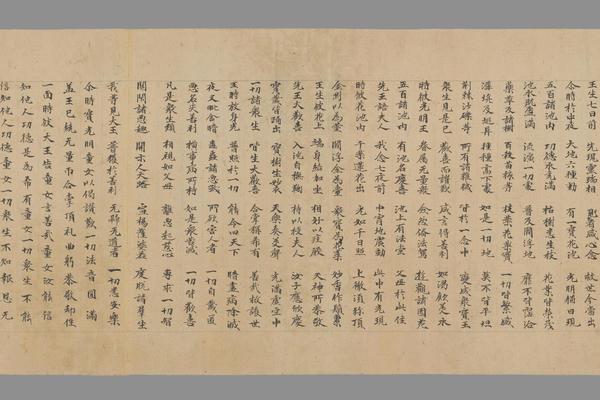 王生七日前 先現靈瑞相 見者咸心念 救世今當出
尒時於中夜 大地六種動 有一寶花池 光明猶日現
五百諸池內 功德水充滿 枯樹悉生枝 花葉皆榮茂
池水既盈滿 流演一切處 普及閻浮地 靡不皆霑洽
藥草及諸樹 百穀苗稼等 枝葉花果實 一切皆繁盛
溝坑及堆阜 種種高下處 如是一切地 莫不皆平坦
荊棘沙礫等 所有諸雜穢 皆於一念中 變成衆寶玉
衆生見是已 歡喜而讚歎 咸言得善利 如渴飲美水
時彼光明王 眷屬無量衆 僉然俻法駕 遊觀諸園苑
五百諸池內 有池名慶喜 池上有法堂 父王於此住
先王語夫人 我念七夜前 中宵地震動 此中有光現
時彼花池內 千葉蓮花出 光如千日照 上徹須弥頂
金剛以爲莖 閻浮金爲臺 衆寶爲花葉 妙香作鬚蘂
王生彼花上 端身結跏坐 相好以莊嚴 天神所恭敬
先王大歡喜 入池自撫鞠 持以授夫人 汝子應欣慶
寶藏皆涌出 寶樹生妙衣 天樂奏美聲 充滿虛空中
一切諸衆生 皆生大歡喜 合掌稱希有 善哉救護世
王時放身光 普照於一切 能令四天下 暗盡病除滅
夜叉毗舍闍 毒蟲諸惡獸 所欲害人者 一切自藏匿
惡名失善利 橫事病所持 如是衆苦滅 一切皆歡喜
凡是衆生類 相視如父母 離惡起慈心 專求一切智
關閉諸惡趣 開示人天路 宣揚薩婆若 度脫諸群生
我等見大王 普獲於善利 無歸無導者 一切悉安樂
尒時寶光明童女以偈讚歎一切法音圓滿
蓋王已繞無量帀合掌頂禮曲躬恭敬却住
一面時彼大王告童女言善哉童女汝能信
知他人功德是爲希有童女一切衆生不能
信知他人功德童女一切衆生不知報恩无